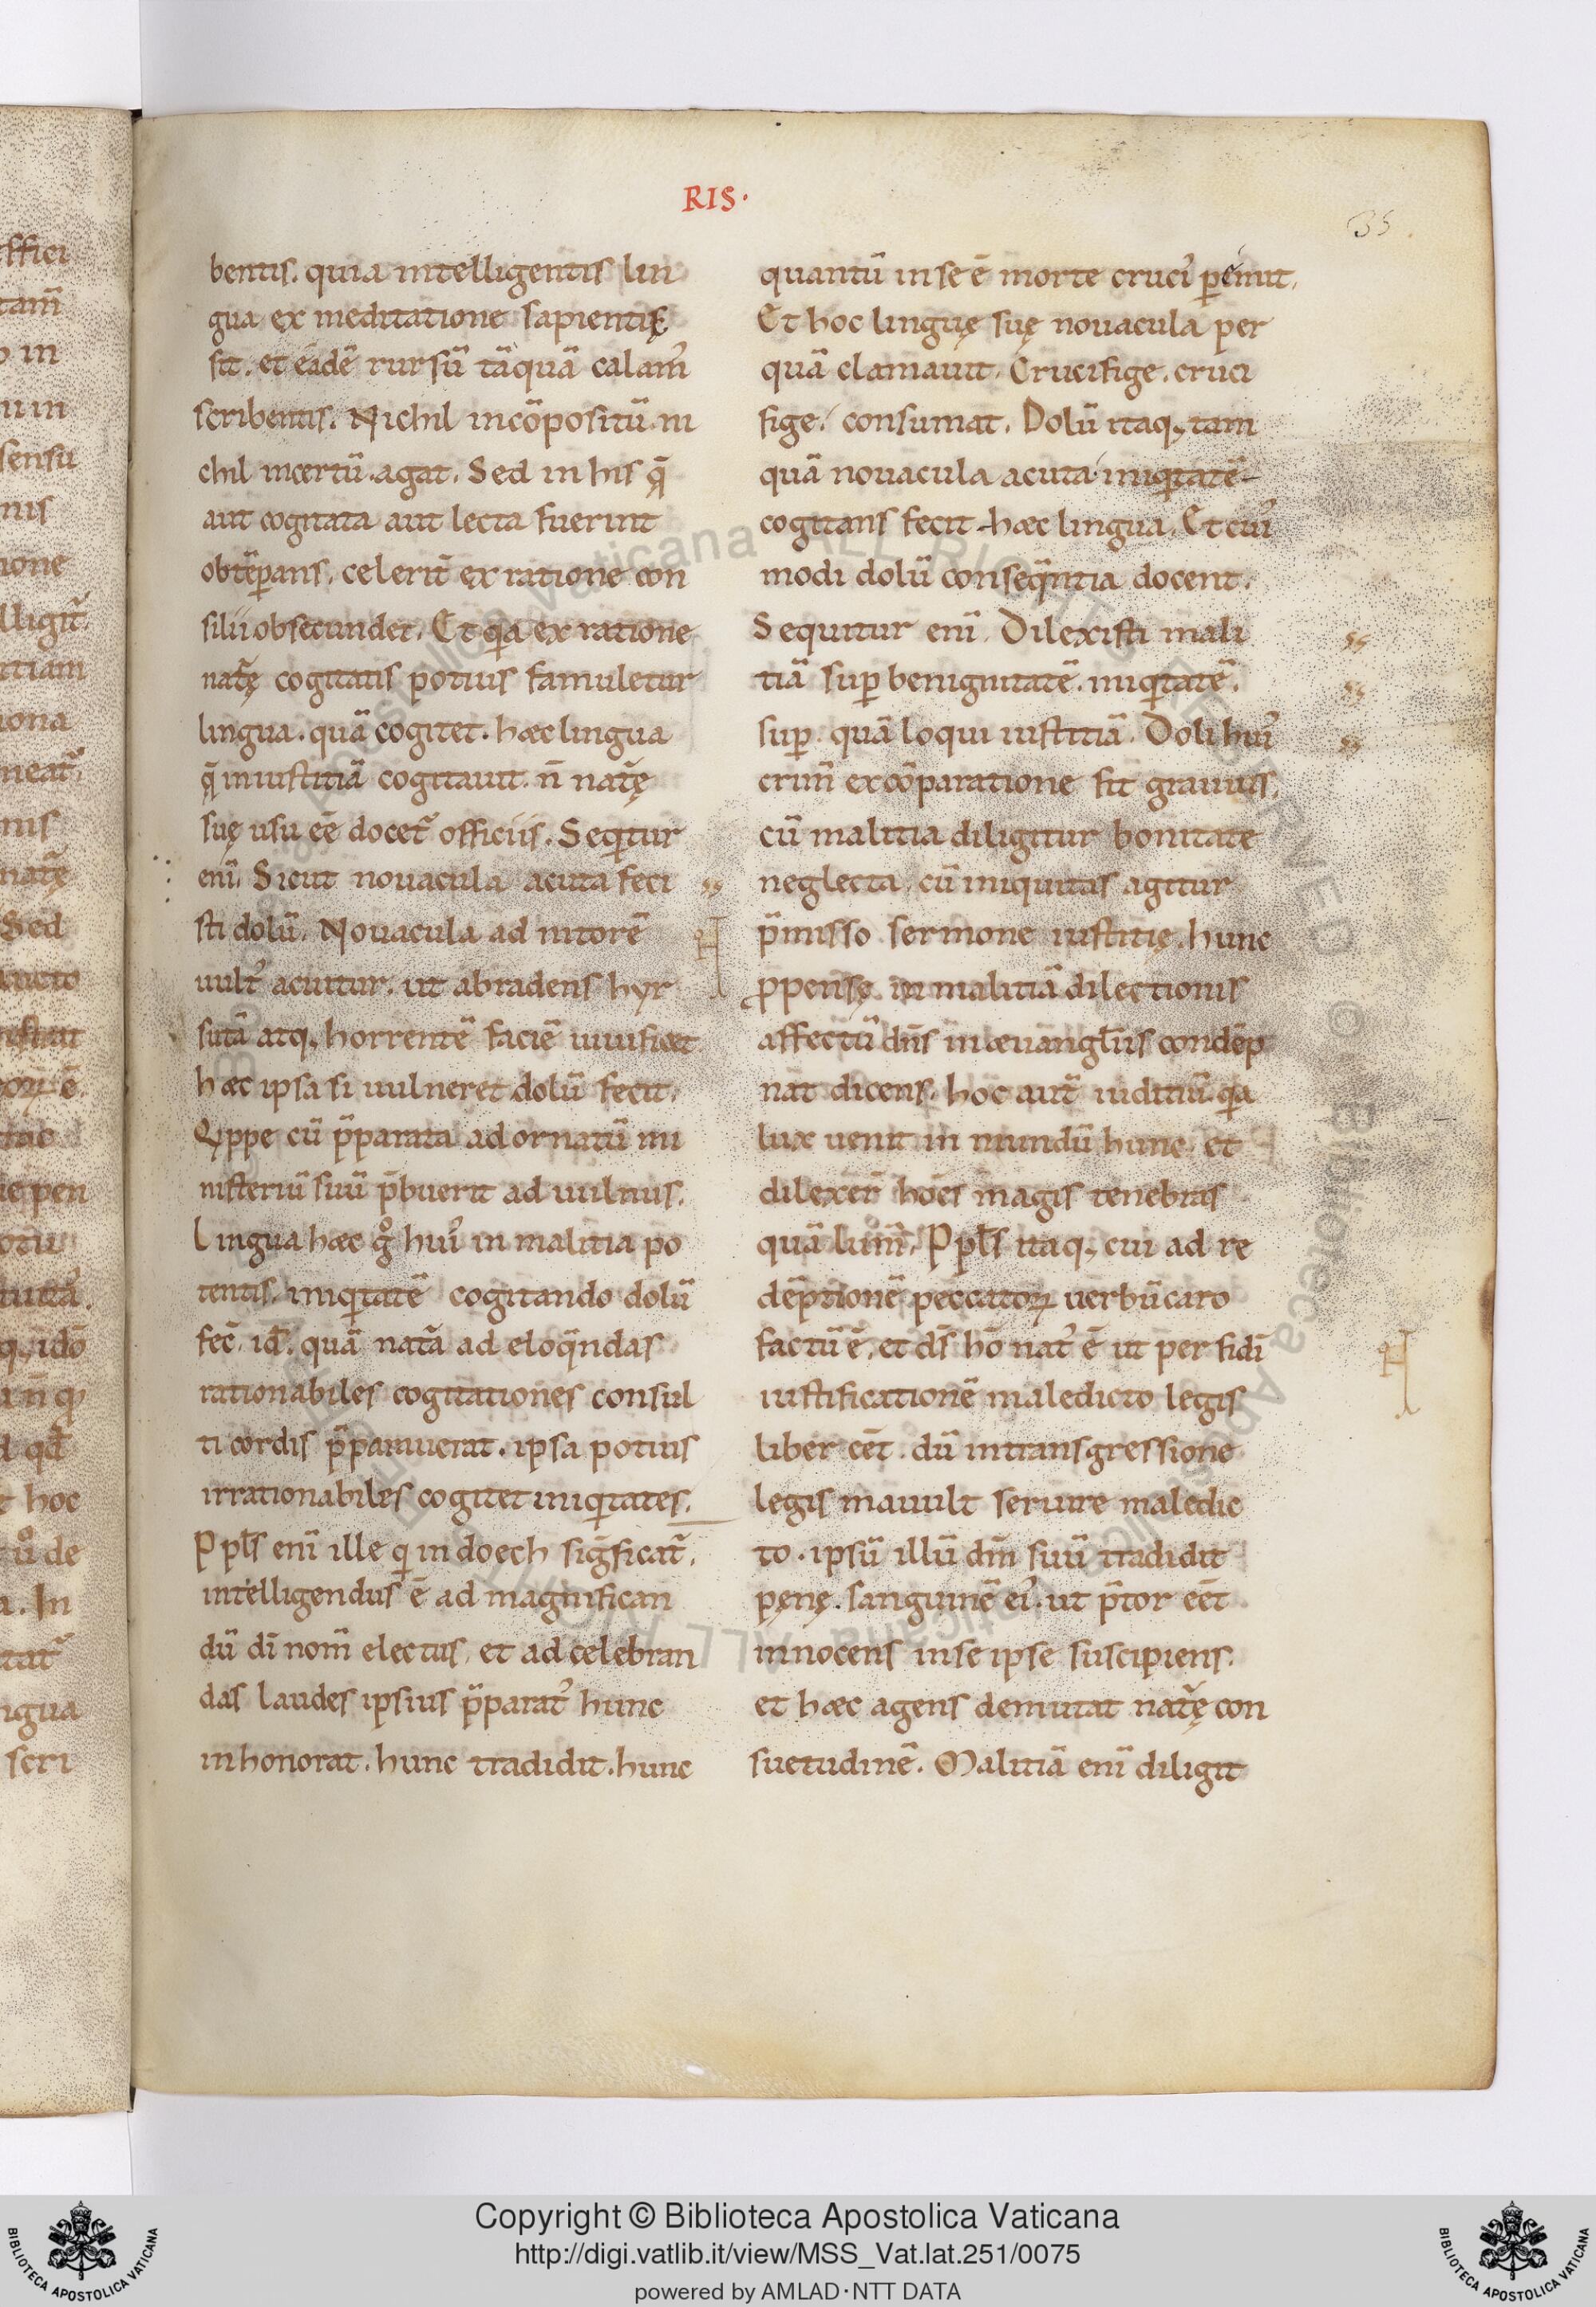 RIS.
35
bentis. quia intelligentis lin
gua ex meditatione sapientię
sit. et eadē rursū tāquā calam᾽
scribentis. Nichil incōpositū. ni
chil incertū. agat. Sed in his q̄
aut cogitata aut lecta fuerint
obtēꝑans. celerit̄ ex ratione con
silii obsecundet. Et qͥa ex ratione
nat᷑ę cogitatis potius famuletur
lingua. quā cogitet. hæc lingua
q̄ iniustitiā cogitauit. n̄ nat᷑ę
suę usu eē docet᷑ officiis. Seqͥtur
enī. Sicut nouacula acuta feci
sti dolū. Nouacula ad nitorē
uult᷒ acuitur. ut abradens hyr
sutā atq; horrentē faciē uiuificet
hæc ipsa si uulneret dolū fecit.
Qͥppe cū p̄parata ad ornatū mi
nisteriū suū p̄buerit ad uulnus.
Lingua hæc gͦ hui᷒ in malitia po
tentis. iniqͥtatē cogitando dolū
fec̄. id ÷. quā nat᷑a ad eloq̄ndas
rationabiles cogitationes consul
ti cordis p̄parauerat. ipsa potius
irrationabiles cogitet iniqͥtates.
Ppl̄s enī ille qͥ in doech siḡficat᷑.
intelligendus ē ad magnifican
dū dī nom̄ electus. et ad celebran
das laudes ipsius p̄parat᷒ hunc
inhonorat. hunc tradidit. hunc
quantū in se ē morte cruci᷒ ꝑémit.
Et hoc linguę suę nouacula per
quā clamauit. Crucifige. cruci
fige. consumat. Dolū itaq; tam
quā nouacula acuta iniqͥtatē
cogitans fecit hæc lingua. Et cui᷒
modi dolū conseq̄ntia docent.
Sequitur enī. Dilexisti mali
tiā suꝑ benignitatē. iniqͥtatē.
suꝑ quā loqui iustitiā. Doli hui᷒
crim̄ ex cōparatione fit grauius.
cū malitia diligitur bonitate
neglecta. cū iniquitas agitur
p̄misso sermone iustitię. hunc
ꝓpensę in malitiā dilectionis
affectū dn̄s in æuangl̄iis condēp
nat dicens. hoc aut̄ iuditiū. qͥa
lux uenit in mundū hunc. et
dilexer̄ hoēs magis tenebras
quā lum̄. Ppl̄s itaq; cui ad re
dēptionē peccatoꝝ uerbū caro
factū ē. et ds̄ hō nat᷒ ē ut per fidī
iustificationē maledicto legis
liber eēt. dū in transgressione
legis mauult seruire maledic
to. ipsū illū dm̄ suū tradidit
pęnę. sanguinē ei᷒. ut p̄tor eēt
innocens in se ipse suscipiens.
et hæc agens demutat nat᷑ę con
suetudinē. Malitiā enī diligit
Copyright © Biblioteca Apostolica Vaticana
http://digi.vatlib.it/view/MSS_Vat.lat.251/0075
powered by AMLAD·NTT DATA
BIBLIOTECA APOSTOLICA VATICANA
BIBLIOTECA APOSTOLICA VATICANA